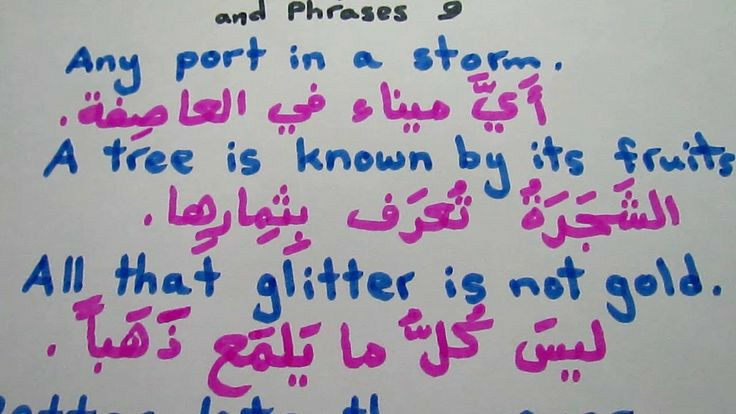 and Phrases 9
Any port in a storm.
أَيَّ ميناء في العاصِفة.
A tree is known by its fruits
الشَجَرَةُ تُعرَف بِثِمارِها.
All that glitter is not gold.
ليسَ كُلَّ ما يَلمَع ذَهَباً.